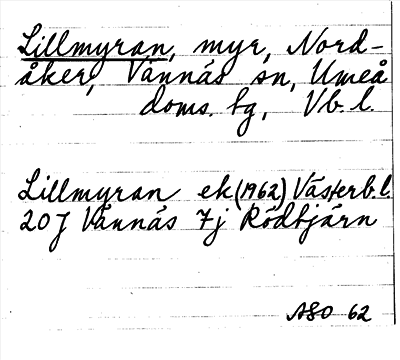 Lillmyran, myr, Nord-
åker, Vännäs sn, Umeå
doms. tg, Vb. l.
Lillmyran ek (1962) Västerb. l.
20 J Vännäs 7j Rödbjärn
ASO 62